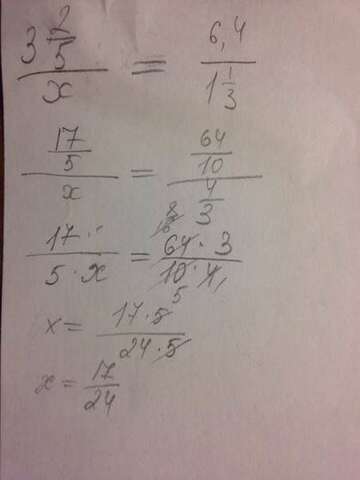 3 2/5 / x = 6,4 / 1 1/3
17/5 / x = 64/10 / 4/3
17 · / 5 · x = 64 · 3 / 10 · 4
16 8
5
x = 17 · 5 / 24 · 5
x = 17/24